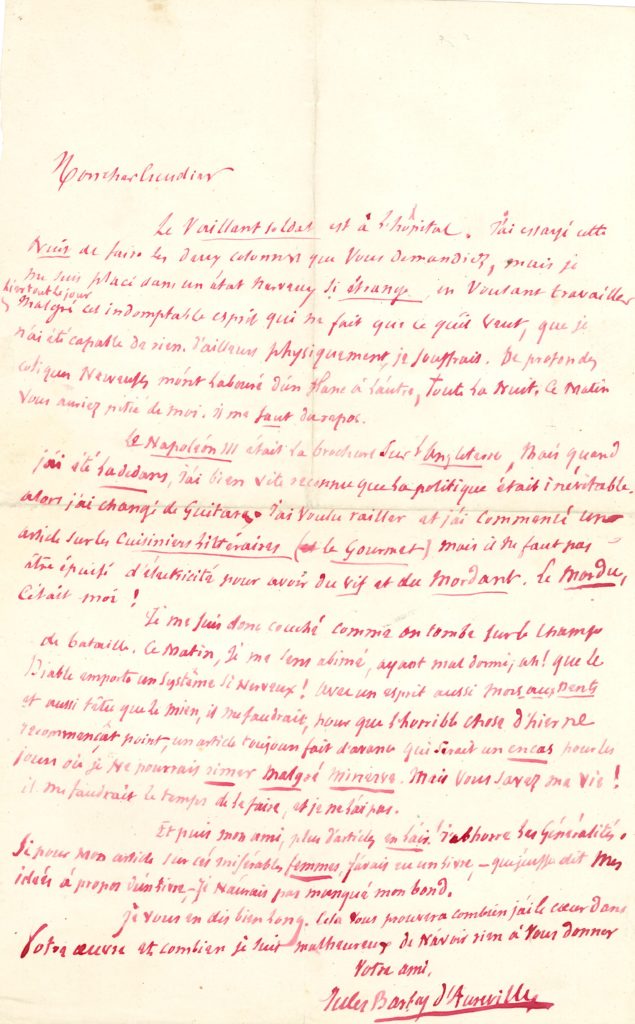 Mon cher
Le Vaillant soldat est à l'hôpital. J'ai essayé cette
Nuit de faire les deux colonnes que Vous demandiez, mais je
me suis placé dans un état Nerveux si étrange, en Voulant travailler
hier tout le jour
Malgré cet indomptable esprit qui ne fait que ce qu'il veut, que je
n'ai été capable de rien. D'ailleurs physiquement, je souffrais. De profondes
coliques Nerveuses m'ont labouré d'un flanc à l'autre, Toute la Nuit. Ce Matin
Vous auriez pitié de moi. il me faut du repos.
Le Napoléon III était la brochure sur l'Angleterre, Mais quand
j'ai été là dedans, j'ai bien vite reconnu que la politique était inévitable.
alors j'ai changé de Guitare. J'ai Voulu railler et j'ai commencé un
article sur les Cuisiniers littéraires (et le Gourmet) mais il Ne faut pas
être épuisé d'électricité pour avoir du vif et du mordant. Le Mordu,
C'était moi !
Je me suis donc couché comme on tombe sur le champ
de bataille. Ce Matin, Je me sens abimé, ayant mal dormi, ah! que le
Diable emporte un système si Nerveux ! Avec un esprit aussi Mors aux Dents
et aussi têtu que le mien, il me faudrait, pour que l'horrible chose d'hier ne
recommençât point, un article toujours fait d'avance qui serait un encas pour les
jours où je Ne pourrais rimer Malgré Minerve. Mais Vous savez ma vie !
il me faudrait le temps de le faire, et je ne l'ai pas.
Et puis mon ami, plus d'articles en l'air ! J'abhorre les Généralités.
Si pour Mon article sur ces misérables femmes, j'avais eu un livre, – que j'eusse dit Mes
idées à propos d'un livre, – Je N'aurais pas manqué mon bond.
Je Vous en dis bien long. Cela Vous prouvera combien j'ai le cœur dans
Votre œuvre et combien je suis malheureux de N'avoir rien à Vous donner
Votre ami,
Jules Barbey d'Aurevilly